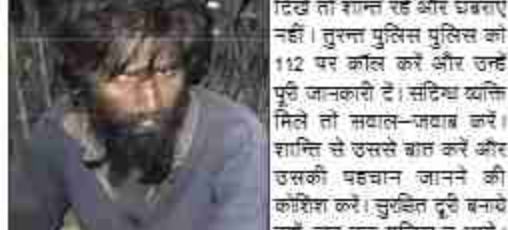 दिखे तो शान्त रहें और घबराएं
नहीं। तुरन्त पुलिस पुलिस को
112 पर कॉल करें और उन्हें
पूरी जानकारी दें। संदिग्ध व्यक्ति
मिले तो सवाल–जवाब करें।
शान्ति से उससे बात करें और
उसकी पहचान जानने की
कोशिश करें। सुरक्षित दूरी बनाये